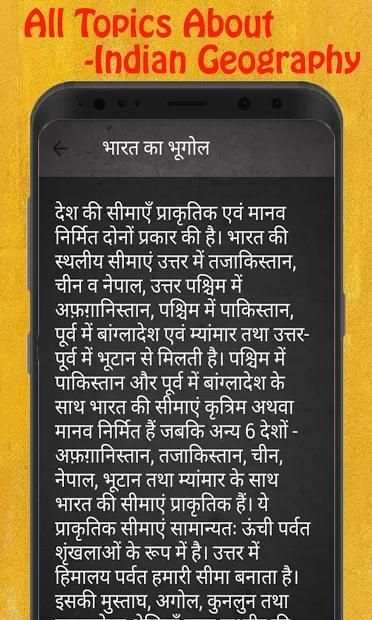 All Topics About
-Indian Geography
भारत का भूगोल
देश की सीमाएँ प्राकृतिक एवं मानव
निर्मित दोनों प्रकार की है। भारत की
स्थलीय सीमाएं उत्तर में तजाकिस्तान,
चीन व नेपाल, उत्तर पश्चिम में
अफ़ग़ानिस्तान, पश्चिम में पाकिस्तान,
पूर्व में बांग्लादेश एवं म्यांमार तथा उत्तर-
पूर्व में भूटान से मिलती है। पश्चिम में
पाकिस्तान और पूर्व में बांग्लादेश के
साथ भारत की सीमाएं कृत्रिम अथवा
मानव निर्मित हैं जबकि अन्य 6 देशों -
अफ़ग़ानिस्तान, तजाकिस्तान, चीन,
नेपाल, भूटान तथा म्यांमार के साथ
भारत की सीमाएं प्राकृतिक हैं। ये
प्राकृतिक सीमाएं सामान्यतः ऊंची पर्वत
शृंखलाओं के रूप में है। उत्तर में
हिमालय पर्वत हमारी सीमा बनाता है।
इसकी मुस्ताघ, अगोल, कुनलुन तथा